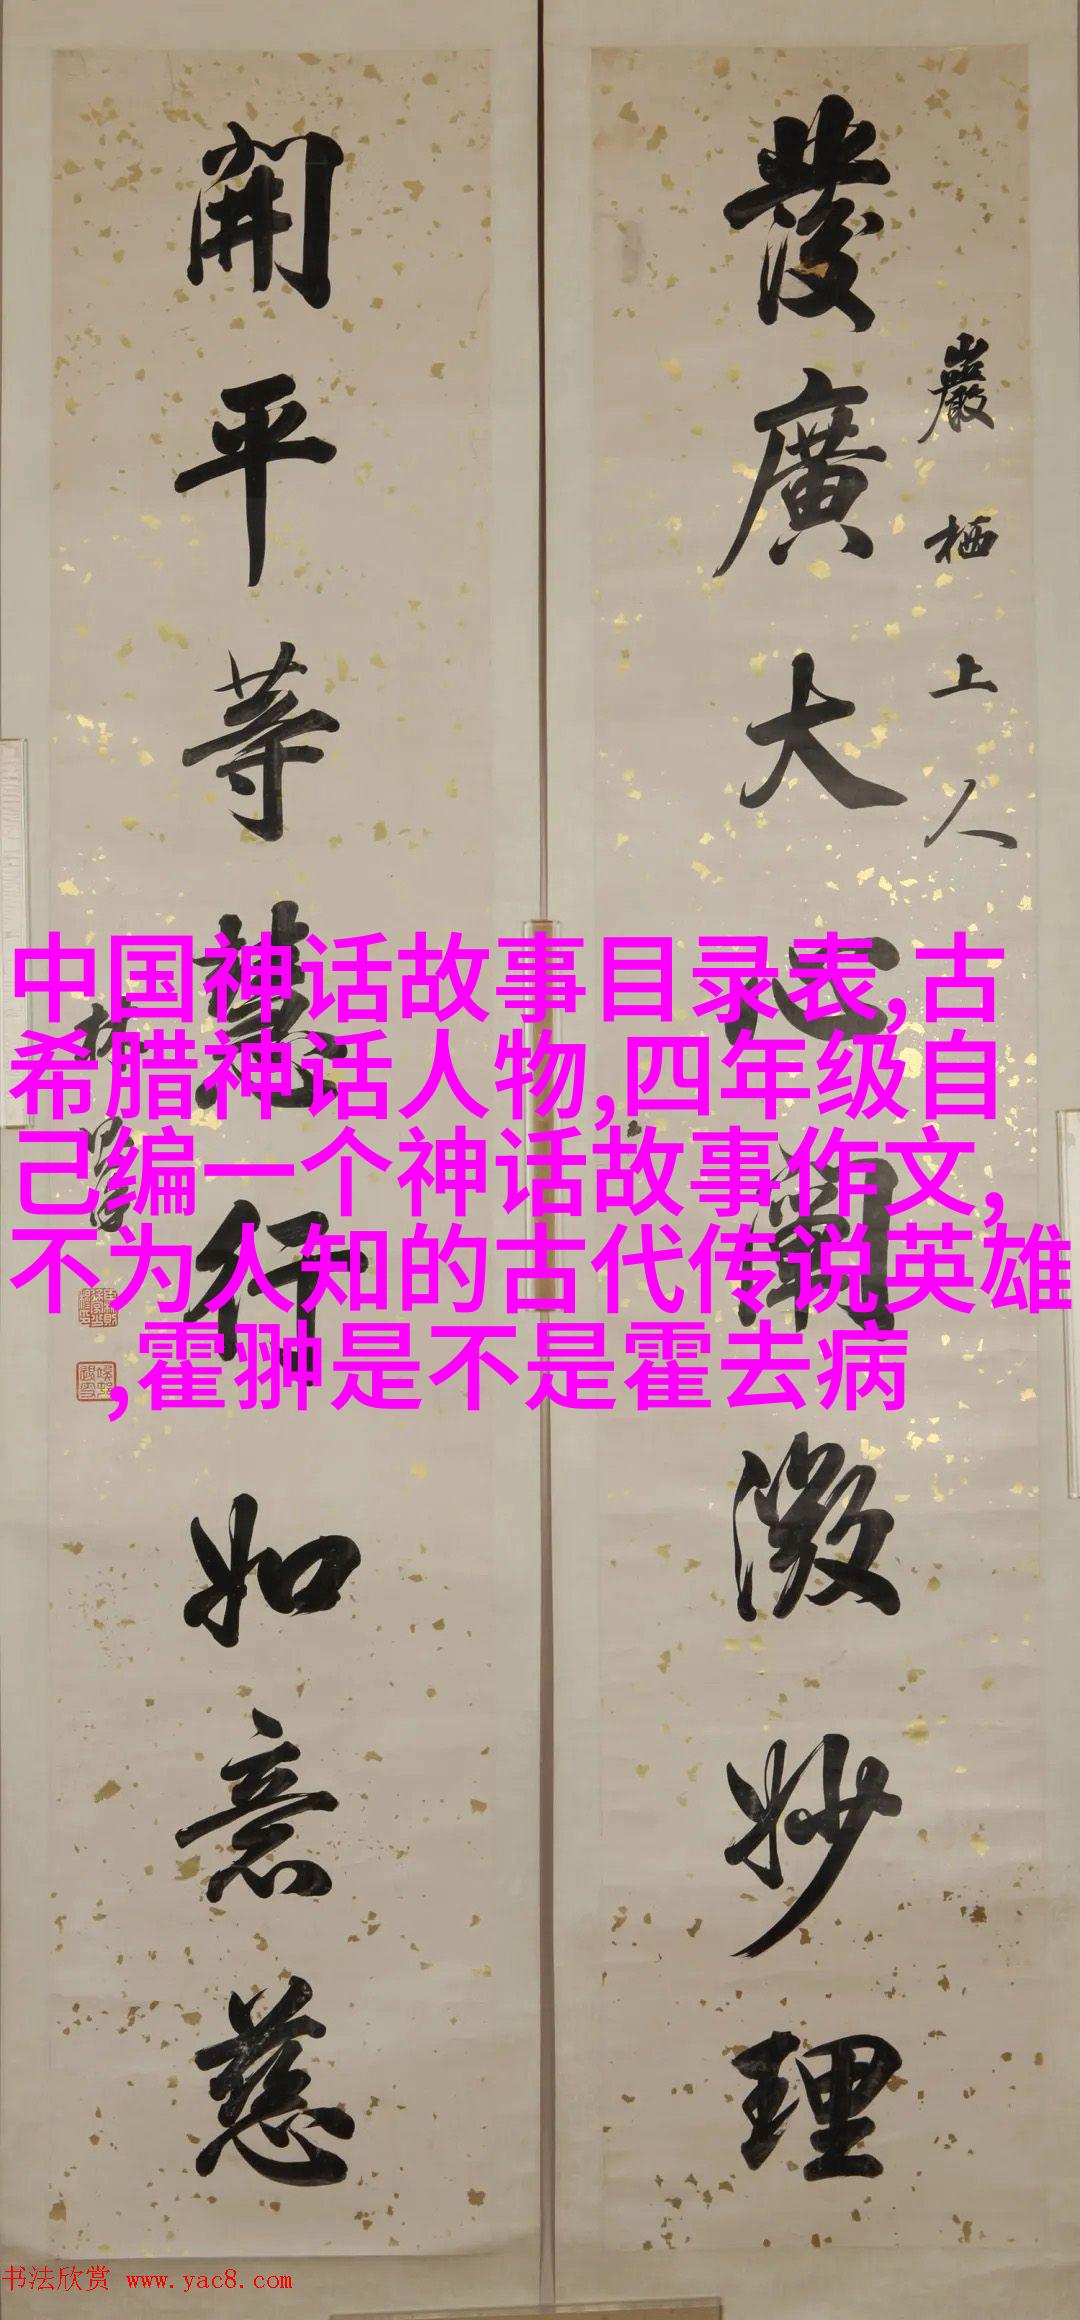 巖栖上人
發廣大心闡微妙理
開平等慧行如意慈
中国神话故事目录表,古
希腊神话人物,四年级自
己编一个神话故事作文,
不为人知的古代传说英雄
,霍翀是不是霍去病
书法欣赏 www.yac8.com